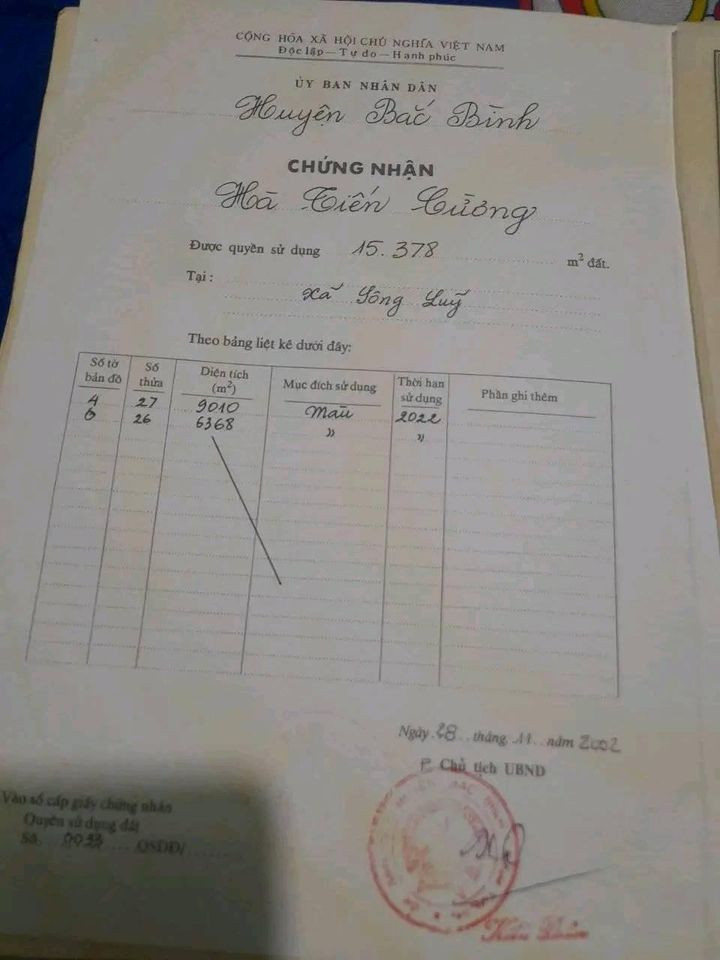 CỘNG HÒA XÃ HỘI CHỦ NGHĨA VIỆT NAM
Độc lập — Tự do — Hạnh phúc
ỦY BAN NHÂN DÂN
Huyện Bắc Bình
CHỨNG NHẬN
Hà Tiến Cương
Được quyền sử dụng 15.378 m² đất.
Tại :
xã Sông Luỹ
Theo bảng liệt kê dưới đây:
Số tờ bản đồ Số thửa Diện tích (m²) Mục đích sử dụng Thời hạn sử dụng Phần ghi thêm
4 27 9010 Màu 2022
6 26 6368 " "
Ngày 28 tháng 11 năm 2002
Chủ tịch UBND
Vào sổ cấp giấy chứng nhận
Quyền sử dụng đất
Số QSDĐ/